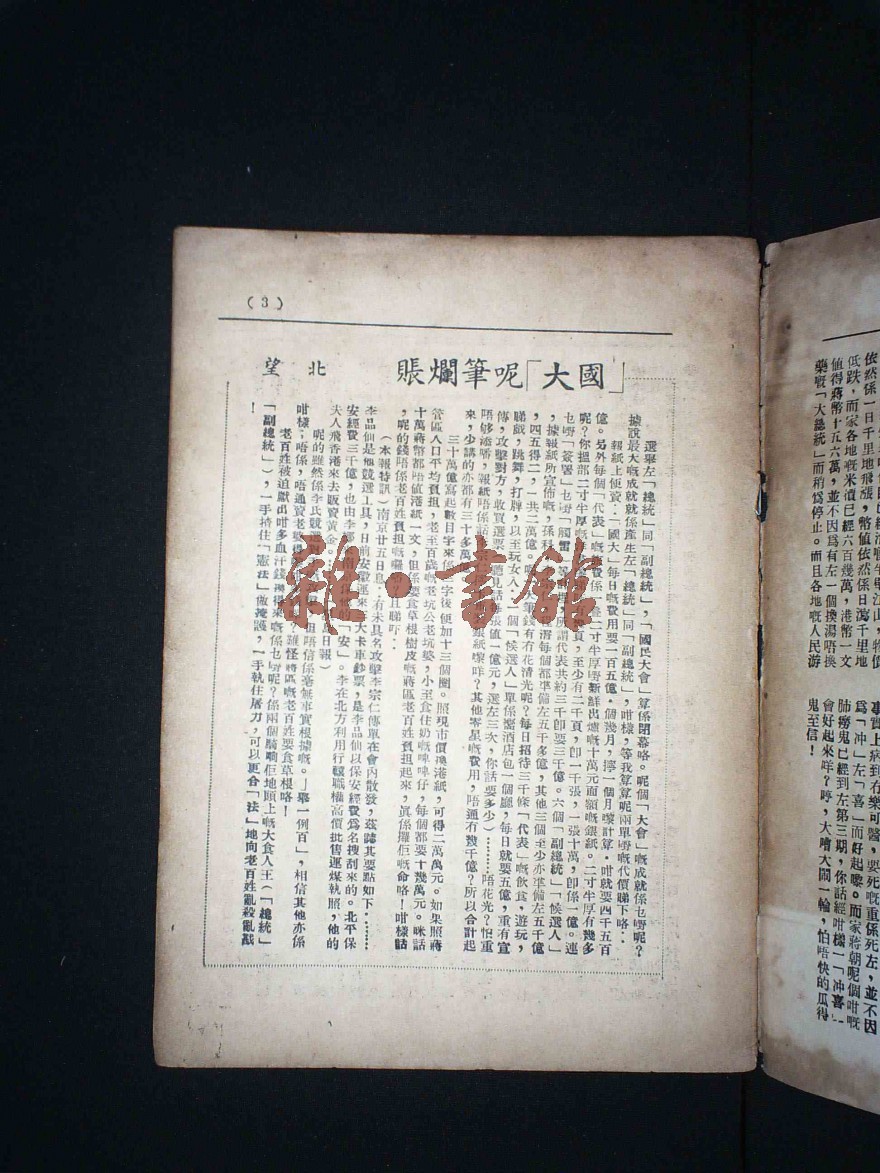 (3)
「國大」呢筆爛賬　北望
選舉左「總統」同「副總統」，「國民大會」算係閉幕咯。呢個「大會」嘅成就係乜嘢呢？
據說最大嘅成就就係產生左「總統」同「副總統」，咁樣，等我算算呢兩單嘢嘅代價睇下咯：
報紙上便寶：「國大」每日嘅費用要一百五億。個幾月，擰一個月嚟計算，咁就要四千五百
億。另外每個「代表」嘅
寸半厚嘅新鮮出爐嘅十萬元面額嘅銀紙。二寸半厚有幾多
呢？你搵部二寸半厚嘅
頁，至少有二千頁，卽一千張，一張十萬，卽係一億。連
乜嘢「簽署」乜嘢
所謂代表共約三千卽要三千億。六個「副總統」「候選人」
，據報紙所宣佈嘅，孫科
每個都準備左五千多億，其他三個至少亦準備左五千億
，四五得二，一共二萬億。
筆錢有冇花清光呢？每日招待三千條「代表」嘅飲食，遊玩，
睇戲，跳舞，打牌，以至玩女人，一個「候選人」單係響酒店包一個廳，每日就要五億，重有宣
傳，攻擊對方，收買選票
聽見話每張值一億元，選左三次，你話要多少）………唔花光？怕重
唔够添噃，報紙唔係話
銀紙嚟咩？其他零星嘅費用，唔通有幾千億？所以合計起
來，少講的亦都有三十多萬
三十萬億寫起數目字來係
字後便加十三個圈。照現市價換港紙，可得二萬萬元。如果照蔣
管區人口平均負担，老至百歲嘅老坑公老坑婆，小至食住奶嘅啤啤仔，每個都要十幾萬元。咪話
十萬蔣幣都唔值港紙一文，但係要食草根樹皮嘅蔣區老百姓負担起來，眞係攞佢嘅命咯！咁樣話
，呢的錢唔係老百姓負担嘅囉咯？且睇下：
（本報特訊）南京廿五日息
有未具名攻擊李宗仁傳單在會內散發，茲誌其要點如下：……
李品仙是他競選工具，日前安徽運來三大卡車鈔票，是李品仙以保安經費爲名搜刮來的。北平保
安經費三千億，也由李
的「安」。李在北方利用行轅職權高價批售運煤執照，他的
夫人飛香港來去販賣黃金
日報）
呢的雖然係李氏競選
但唔信係毫無事實根據嘅。「舉一例百」，相信其他亦係
咁樣；唔係，唔通賣老婆得
怪蔣區嘅老百姓要食草根咯！
老百姓被迫獻出咁多血汗錢換得
係乜嘢呢？係兩個騎喺佢地頭上嘅大食人王（「總統」
「副總統」），一手揸住「憲法」做掩護，一手執住屠刀，可以更合「法」地向老百姓亂殺亂戮
！
依然係一日千里地飛漲，幣值依然係日瀉千里地
低跌，而家各地嘅米價已經六百幾萬，港幣一文
值得蔣幣十五六萬，並不因爲有左一個換湯唔換
藥嘅「大總統」而稍爲停止。而且各地嘅人民游
事實上病到冇藥可醫，要死嘅重係死左，並不因
爲「冲」左「喜」而好起嚟。而家蔣朝呢個咁嘅
肺癆鬼已經到左第三期，你話經咁樣一「冲喜」
會好起來咩？哼，大噲大鬧一輪，怕唔快的瓜得
鬼至信！
雜·書館